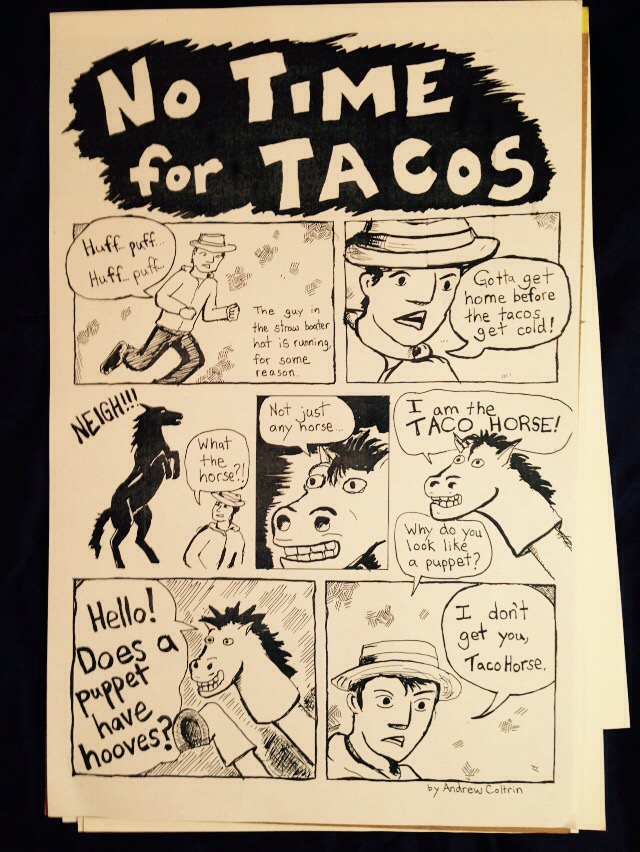 No Time
for Tacos
Huff.. puff...
Huff.. puff...
The guy in
the straw boater
hat is running,
for some
reason.
Gotta get
home before
the tacos
get cold!
NEIGH!!!
What
the
horse?!
Not just
any horse...
I am the
TACO HORSE!
Why do you
look like
a puppet?
Hello!
Does a
puppet
have
hooves?
I don't
get you,
Taco Horse.
by Andrew Coltrin